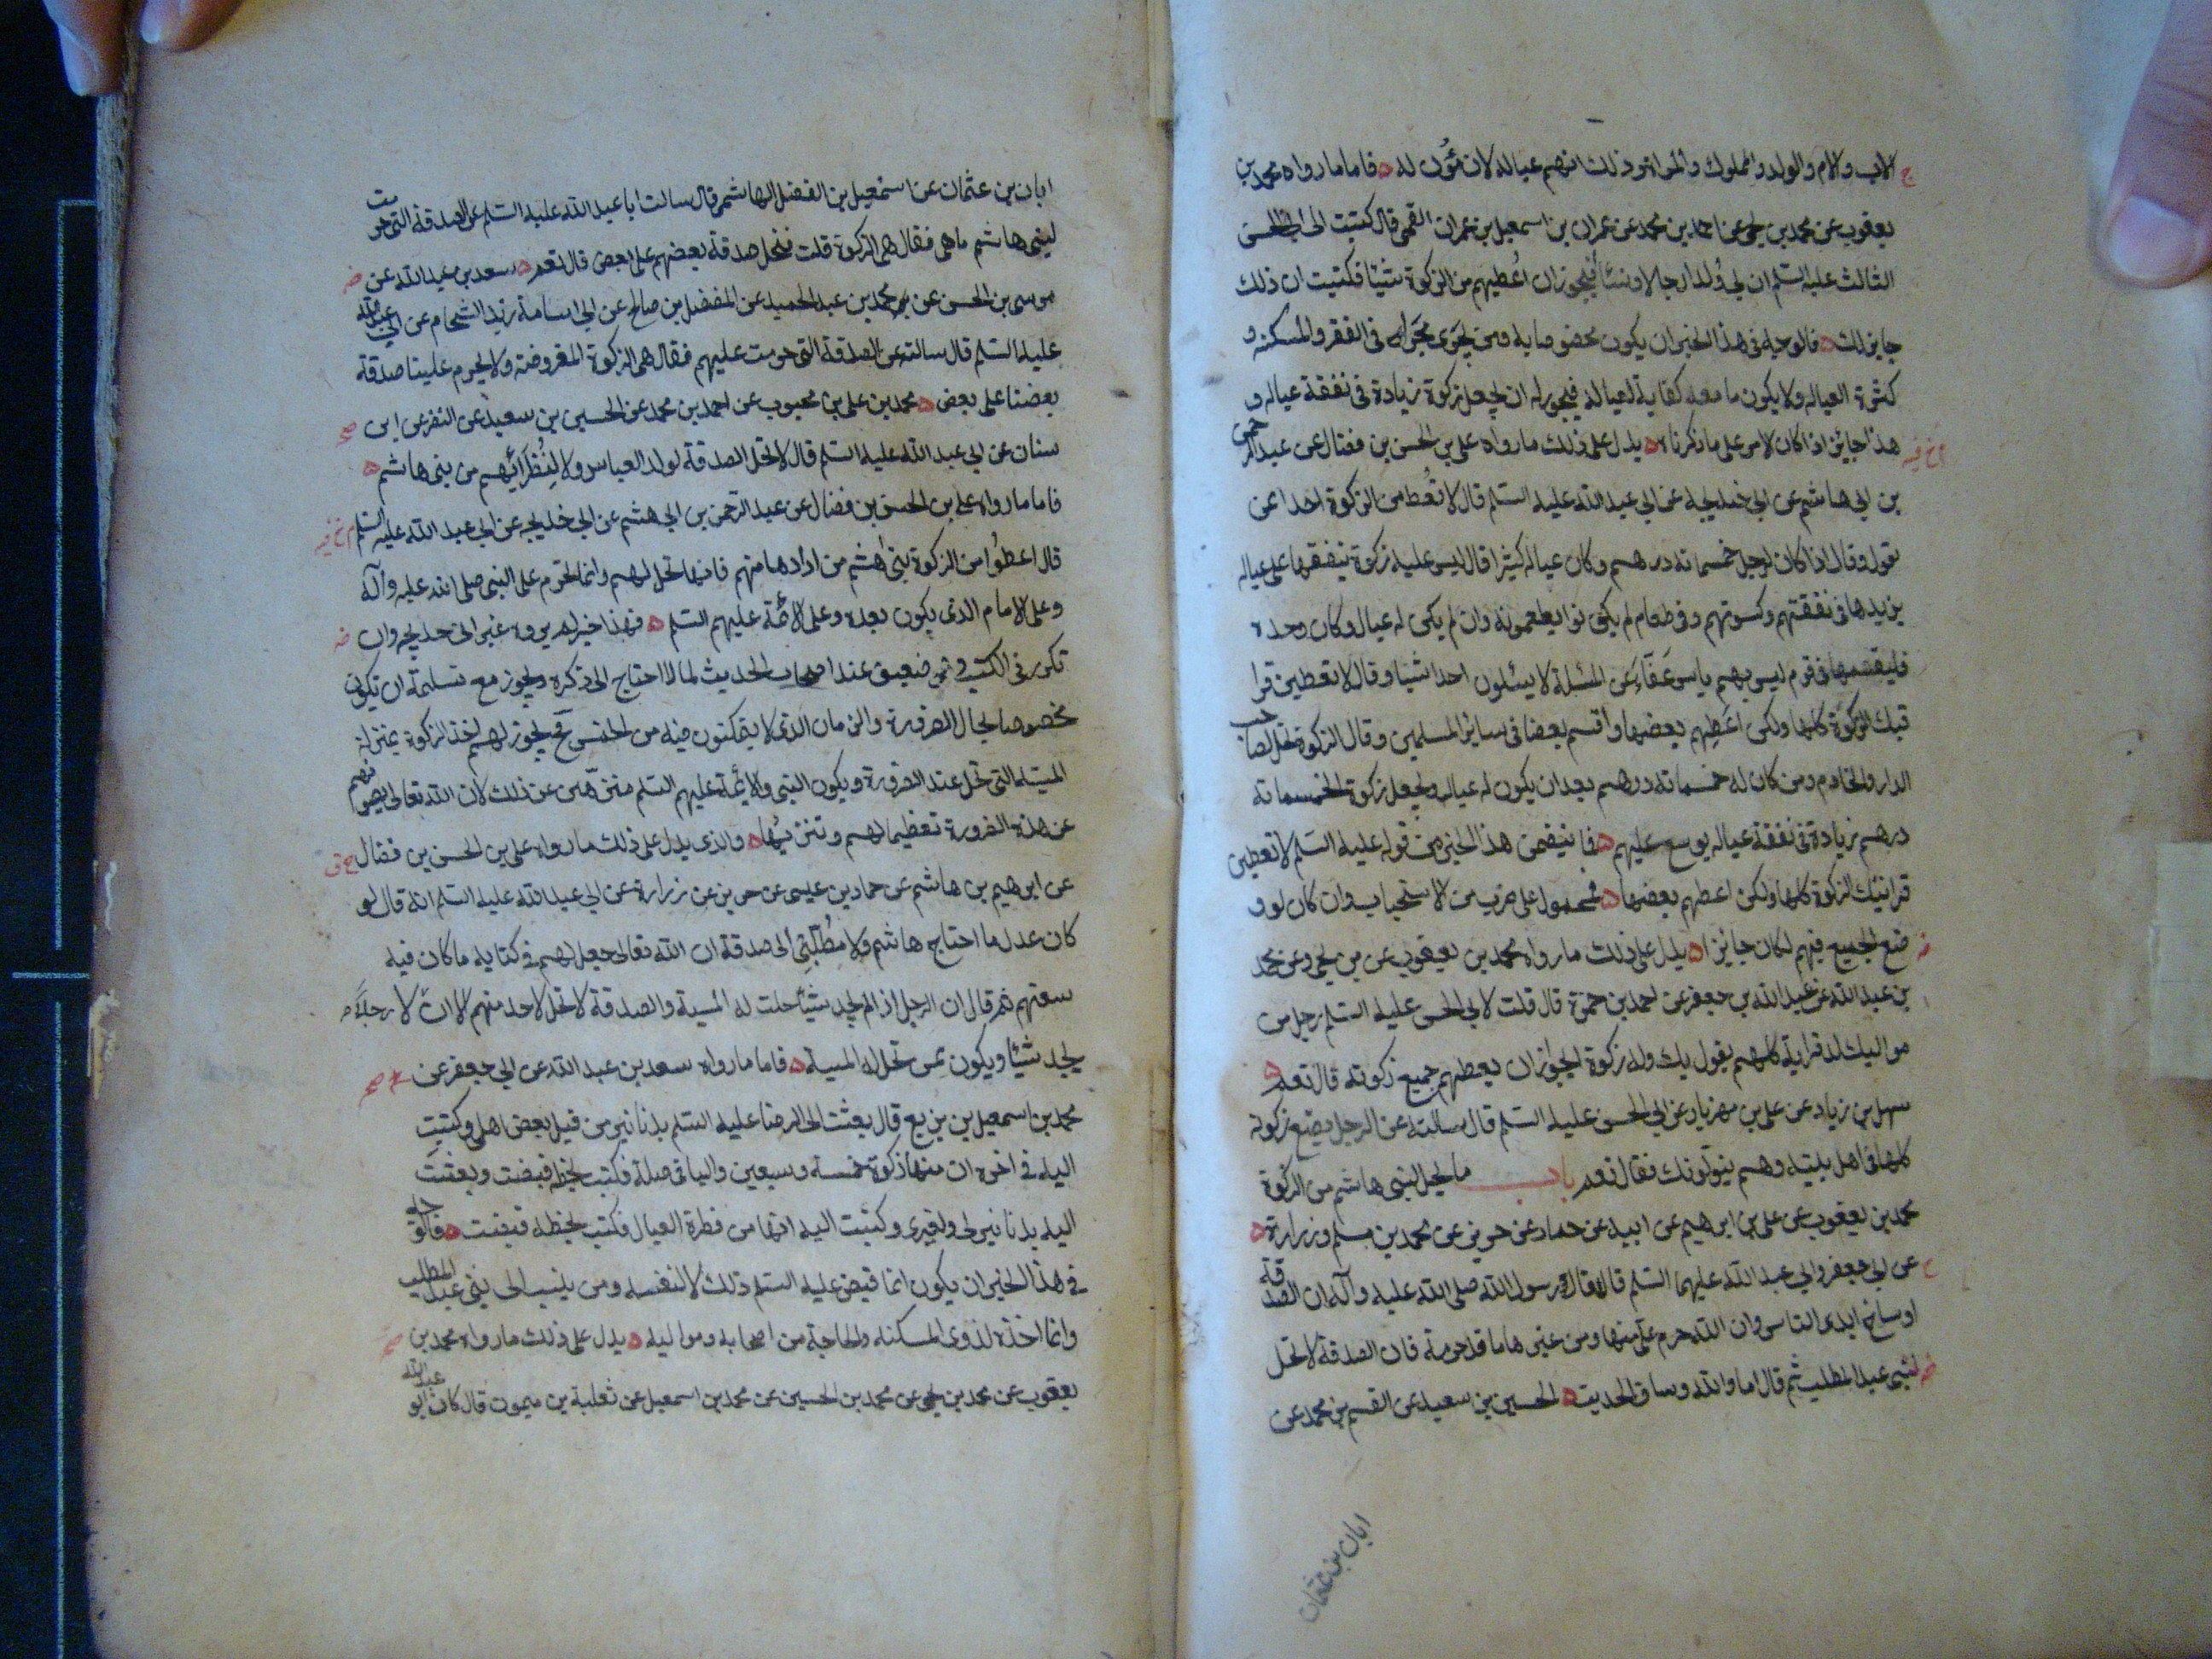 الاب والام والولد والمملوك والمراة وذلك انهم عياله لازمون له فاما ما رواه محمد بن
يعقوب عن محمد بن يحيى عن احمد بن محمد عن عمران بن اسمعيل بن عمران القمى قال كتبت الى ابى الحسن
الثالث عليه السلم ان لى وُلدا رجالا ونسآءً فيجوز ان اُعطيهم من الزكوة شيئا فكتبت ان ذلك
جايز لك فالوجه فى هذا الخبر ان يكون مخصوصا به ومن يجرى مجراه فى الفقر والمسكنه و
كثرة العيال ولا يكون ما معه كفاية لعياله فيجوز له ان يجعل زكوة زيادة فى نفقة عياله و
هذا جايز اذا كان الامر على ما ذكرناه يدل على ذلك ما رواه على بن الحسن بن فضال عن عبد الرحمن
بن ابى هاشم عن ابى خديجة عن ابى عبد الله عليه السلم قال لا تُعط من الزكوة احدا عن
يعول وقال اذا كان لرجل خمسماته درهم وكان عياله كثيرا قال ليس عليه زكوة ينفقها على عياله
يزيدها فى نفقتهم وكسوتهم وفى طعام لم يكونوا يطعمونه وان لم يكن له عيال وكان وحده
فليقسمها فى قوم ليس بهم باس عَفاء عن المسئلة لا يسئلون احدا شيئا وقال لا تعطين قرا
قبك الزكوة كلها ولكن اعطِهم بعضها واقسم بعضا فى سائر المسلمين وقال الزكوة تحل لصاحب
الدار والخادم ومن كان له خمسماته درهم بعد ان يكون له عيال ويجعل زكوة الخمسماته
درهم زيادة فى نفقة عياله يوسع عليهم فما يتضمن هذا الخبر من قوله عليه السلم لا تعطين
قرابتك الزكوة كلها ولكن اعطهم بعضها محمول على ضرب من الاستحباب وان كان لو و
ضع الجميع فيهم لكان جايزا يدل على ذلك ما رواه محمد بن يعقوب عن بن يحيى وعن محمد
بن عبد الله عن عبد الله بن جعفر عن احمد بن حمزة قال قلت لابى الحسن عليه السلم رجل من
مواليك له قرابة كلهم يقول بك وله زكوة ايجوز ان يعطيهم جميع زكوته قال نعم
سهل بن زياد عن على بن مهزيار عن ابى الحسن عليه السلم قال سالته عن الرجل يضع زكوته
كلها فى اهل بيته وهم يتولونك فقال نعم باب ما يحل لبنى هاشم من الزكوة
محمد بن يعقوب عن على بن ابرهيم عن ابيه عن حماد عن حريز عن محمد بن مسلم وزرارة
عن ابى جعفر وابى عبد الله عليهما السلم قالا قال رسول الله صلى الله عليه وآله ان الصدقة
اوساخ ايدى الناس وان الله حرم علىّ منها ومن غيرها ما قد حرمه فان الصدقة لا تحل
لبنى عبد المطلب ثم قال اما والله وساق الحديث الحسين بن سعيد عن القسم بن محمد عن
ابان بن عثمان
ابان بن عثمان عن اسمعيل بن الفضل الهاشمى قال سالت ابا عبد الله عليه السلم عن الصدقة التى حرمت
لبنى هاشم ما هى فقال هى الزكوة قلت فتحل صدقة بعضهم على بعض قال نعم سعد بن عبد الله عن
موسى بن الحسن عن محمد بن عبد الحميد عن المفضل بن صالح عن ابى اسامة زيد الشحام عن ابى عبد الله
عليه السلم قال سالته عن الصدقة التى حرمت عليهم فقال هى الزكوة المفروضة ولا يحرم علينا صدقة
بعضنا على بعض محمد بن على بن محبوب عن احمد بن محمد عن الحسين بن سعيد عن النضر عن ابن
سنان عن ابى عبد الله عليه السلم قال لا تحل الصدقة لولد العباس ولا لنُظرَائِهم من بنى هاشم
فاما ما رواه على بن الحسن بن فضال عن عبد الرحمن بن ابى هشم عن ابى خديجه عن ابى عبد الله عليه السلم
قال اعطوُا من الزكوة بنى هاشم من ارادها منهم فانها تحل لهم وانما تحرم على النبى صلى الله عليه وآله
وعلى الامام الذى يكون بعده وعلى الائمّة عليهم السلم فهذا خبر لم يروه غير ابى خديجه وان
تكرر فى الكتب وهو ضعيف عند اصحاب الحديث لما لا احتاج الى ذكره ويجوز مع تسليمه ان يكون
مخصوصا بحال الضرورة والزمان الذى لا يتمكنون فيه من الخمس فح يجوز لهم اخذ الزكوة بمنزلة
الميتة التى تحل عند الضرورة ويكون النبى والائمة عليهم السلم منزهين عن ذلك لان الله تعالى يصونهم
عن هذه الضرورة تعظيما لهم وتنزيها والذى يدل على ذلك ما رواه على بن الحسن بن فضال
عن ابرهيم بن هاشم عن حماد بن عيسى عن حريز عن زرارة عن ابى عبد الله عليه السلم انه قال لو
كان عدل ما احتاج هاشمى ولا مُطّلبى الى صدقة ان الله تعالى جعل لهم فى كتابه ما كان فيه
سعتهم ثم قال ان الرجل اذا لم يجد شيئا حلت له الميتة والصدقة لا تحل لاحد منهم الا ان لا
يجد شيئا ويكون ممن تحل له الميتة فاما ما رواه سعد بن عبد الله عن ابى جعفر عن
محمد بن اسمعيل بن بزيع قال بعثت الى الرضا عليه السلم بدنانير من قبل بعض اهلى وكتبت
اليه فى اخره ان منها زكوة خمسه وسبعين والباقى صلة فكتب بخطه قبضت وبعثت
اليه بدنانير لى ولغيرى وكتبت اليه انها من فطرة العيال فكتب بخطه قبضت فالوجه
فى هذا الخبر ان يكون انما قبض عليه السلم ذلك لا لنفسه ومن ينسب الى بنى عبد المطلب
وانما اخذه لذوى المسكنه والحاجة من اصحابه ومواليه يدل على ذلك ما رواه محمد بن
يعقوب عن محمد بن يحيى عن محمد بن الحسين عن محمد بن اسمعيل عن ثعلبة بن ميمون قال كان ابو عبد الله